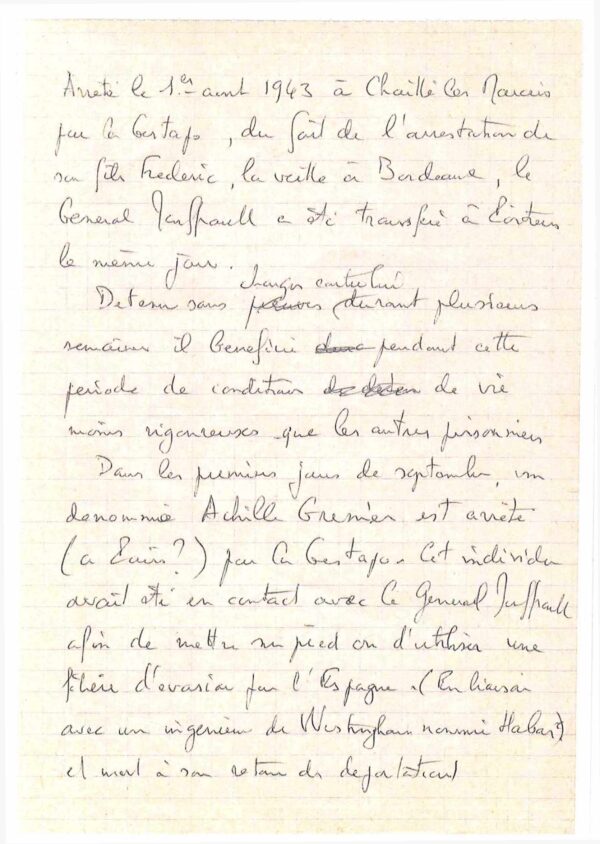 Arreté le 1er aout 1943 à Chaillé les Marais
par la Gestapo, du fait de l'arrestation de
son fils Frederic, la veille à Bordeaux, le
General Jouffrault a été transféré à Poitiers
le même jour.
charges contre lui
Detenu sans preuves durant plusieurs
semaines il beneficie pendant cette
periode de conditions de vie
moins rigoureuses que les autres prisonniers
Dans les premiers jours de septembre, un
denommé Achille Grenier est arrêté
(a Paris?) par la Gestapo. Cet individu
avait été en contact avec le General Jouffrault
afin de mettre sur pied ou d'utiliser une
filière d'evasion par l'Espagne. (En liaison
avec un ingenieur de Westinghouse nommé
et mort à son retour de deportation)